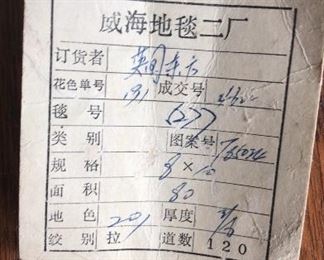 威海地毯二厂
订货者 英国
花色单号 191 成交号
毯号 527
类别 图案号
规格 8×10
面积 80
地色 201 厚度
绞别 拉 道数 120